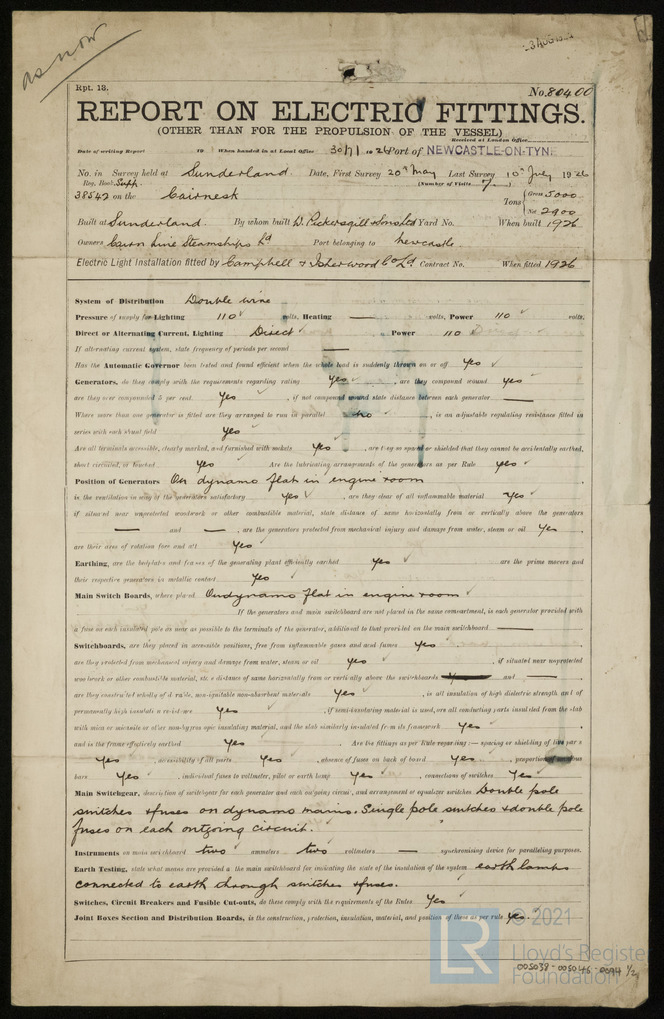 as now
23 AUG 192
Rpt. 13.
No. 80400
REPORT ON ELECTRIC FITTINGS.
(OTHER THAN FOR THE PROPULSION OF THE VESSEL)
Received at London Office
Date of writing Report 19 When handed in at Local Office 30/7/1926 Port of NEWCASTLE-ON-TYNE
No. in Survey held at Sunderland. Date, First Survey 20th May Last Survey 10th July 1926
Reg. Book. Supp. (Number of Visits 7.)
38542 on the Cairnesk Tons { Gross 5000
Net 2900
Built at Sunderland. By whom built W. Pickersgill & Sons Ltd Yard No. When built 1926
Owners Cairn Line Steamships Ld Port belonging to Newcastle.
Electric Light Installation fitted by Campbell & Isherwood Co Ld. Contract No. When fitted 1926
System of Distribution Double wire
Pressure of supply for Lighting 110 volts, Heating — volts, Power 110 volts,
Direct or Alternating Current, Lighting Direct Power 110
If alternating current system, state frequency of periods per second —
Has the Automatic Governor been tested and found efficient when the whole load is suddenly thrown on or off Yes
Generators, do they comply with the requirements regarding rating Yes, are they compound wound Yes
are they over compounded 5 per cent. Yes, if not compound wound state distance between each generator —
Where more than one generator is fitted are they arranged to run in parallel no, is an adjustable regulating resistance fitted in
series with each shunt field Yes
Are all terminals accessible, clearly marked, and furnished with sockets Yes, are they so spaced or shielded that they cannot be accidentally earthed,
short circuited, or touched Yes Are the lubricating arrangements of the generators as per Rule Yes
Position of Generators On dynamo flat in engine room
is the ventilation in way of the generators satisfactory Yes, are they clear of all inflammable material Yes
if situated near unprotected woodwork or other combustible material, state distance of same horizontally from or vertically above the generators
— and —, are the generators protected from mechanical injury and damage from water, steam or oil Yes
are their axes of rotation fore and aft Yes
Earthing, are the bedplates and frames of the generating plant efficiently earthed Yes are the prime movers and
their respective generators in metallic contact Yes
Main Switch Boards, where placed On dynamo flat in engine room
If the generators and main switchboard are not placed in the same compartment, is each generator provided with
a fuse on each insulated pole as near as possible to the terminals of the generator, additional to that provided on the main switchboard —
Switchboards, are they placed in accessible positions, free from inflammable gases and acid fumes Yes
are they protected from mechanical injury and damage from water, steam or oil Yes, if situated near unprotected
woodwork or other combustible material, state distance of same horizontally from or vertically above the switchboards — and —
are they constructed wholly of durable, non-ignitable non-absorbent materials Yes, is all insulation of high dielectric strength and of
permanently high insulation resistance Yes, if semi-insulating material is used, are all conducting parts insulated from the slab
with mica or micanite or other non-hygroscopic insulating material, and the slab similarly insulated from its framework Yes
and is the frame effectively earthed Yes. Are the fittings as per Rule regarding:— spacing or shielding of live parts
Yes, accessibility of all parts Yes, absence of fuses on back of board Yes, proportion of omnibus
bars Yes, individual fuses to voltmeter, pilot or earth lamp Yes, connections of switches Yes
Main Switchgear, description of switchgear for each generator and each outgoing circuit, and arrangement of equalizer switches Double pole
switches & fuses on dynamo mains. Single pole switches & double pole
fuses on each outgoing circuit.
Instruments on main switchboard two ammeters two voltmeters — synchronising device for paralleling purposes.
Earth Testing, state what means are provided at the main switchboard for indicating the state of the insulation of the system earth lamps
connected to earth through switches & fuses.
Switches, Circuit Breakers and Fusible Cut-outs, do these comply with the requirements of the Rules Yes
Joint Boxes Section and Distribution Boards, is the construction, protection, insulation, material, and position of these as per rule Yes.
LR © 2021
Lloyd's Register
Foundation
005038-005046-0094 1/2